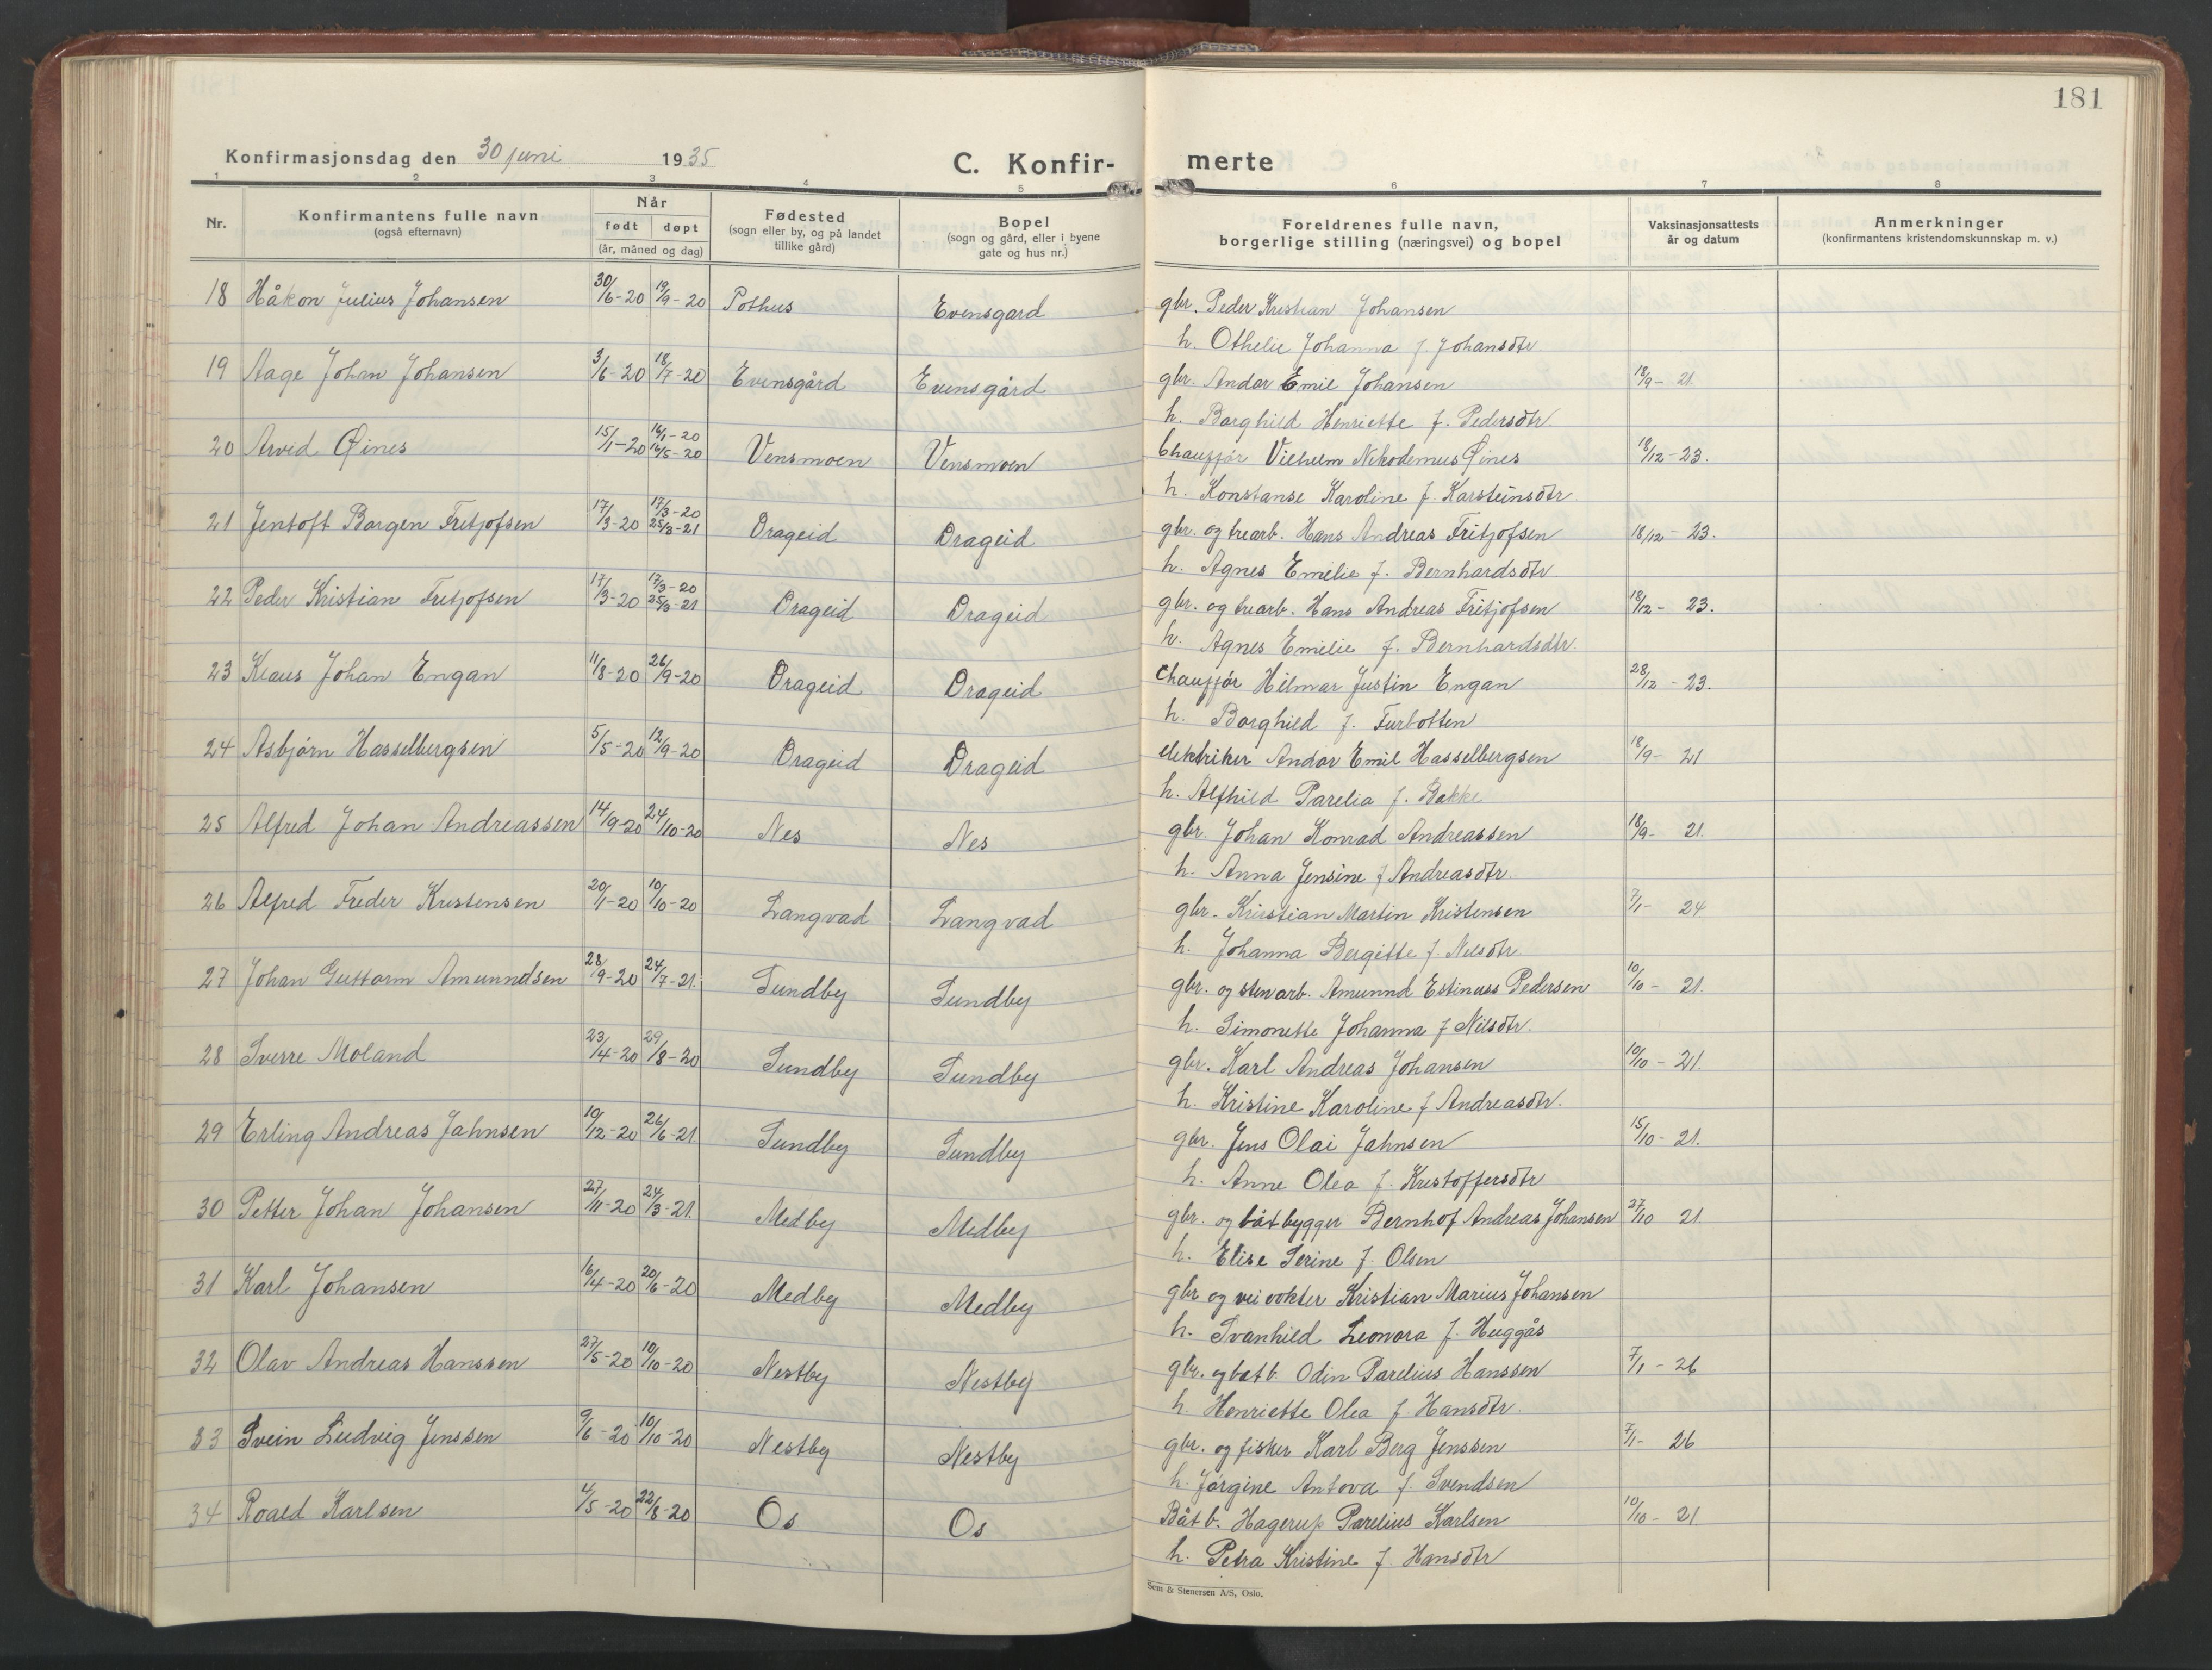 181
Konfirmasjonsdag den 30 juni 1935 C. Konfirmerte
1 2 3 4 5 6 7 8
Nr. Konfirmantens fulle navn (også efternavn) Når født døpt (år, måned og dag) Fødested (sogn eller by, og på landet tillike gård) Bopel (sogn og gård, eller i byene gate og hus nr.) Foreldrenes fulle navn, borgerlige stilling (næringsvei) og bopel Vaksinasjonsattests år og datum Anmerkninger (konfirmantens kristendomskunnskap m. v.)
18 Håkon Julius Johansen 30/6-20 19/9-20 Pothus Evensgard gbr. Peder Kristian Johansen
h. Othelie Johanna f Johansdtr
19 Aage Johan Johansen 3/6-20 18/7-20 Evensgård Evensgård gbr. Andor Emil Johansen 18/9- 21.
h. Borghild Henriette f. Pedersdtr.
20 Arvid Øines 15/1-20 16/1-20 16/5-20 Vensmoen Vensmoen Chauffør Vilhelm Nikodemus Øines 18/12-23.
h. Konstanse Karoline f. Karsteinsdtr.
21 Jentoft Borgen Fritjofsen 17/3-20 17/3-20 25/3-21 Drageid Drageid gbr. og trearb. Hans Andreas Fritjofsen 18/12-23.
h. Agnes Emelie f. Bernhardsdtr
22 Peder Kristian Fritjofsen 17/3-20 17/3-20 25/3-21 Drageid Drageid gbr. og trearb. Hans Andreas Fritjofsen 18/12- 23.
h. Agnes Emelie f. Bernhardsdtr.
23 Klaus Johan Engan 11/8-20 26/9-20 Drageid Drageid Chauffør Hilmar Justin Engan 28/12-23.
h. Borghild f. Furbotten
24 Asbjørn Hasselbergsen 5/5-20 12/9-20 Drageid Drageid elektriker Andor Emil Hasselbergsen 18/9- 21
h. Alfhild Parelia f. Bakke
25 Alfred Johan Andreassen 14/9-20 24/10-20 Nes Nes gbr. Johan Konrad Andreassen 18/9- 21.
h. Anna Jensine f Andreasdtr.
26 Alfred Freder Kristensen 20/1-20 10/10-20 Langvad Langvad gbr. Kristian Martin Kristensen 7/1- 24
h. Johanna Bergitte f. Nilsdtr.
27 Johan Guttorm Amunndsen 28/9-20 24/7-21. Sundby Sundby gbr. og stenarb. Amunnd Estinuss Pedersen 10/10- 21.
h. Simonette Johanna f Nilsdtr.
28 Sverre Moland 23/4-20 29/8-20 Sundby Sundby gbr. Karl Andreas Johansen 10/10-21.
h. Kristine Karoline f Andreasdtr.
29 Erling Andreas Jahnsen 10/12-20 26/6-21 Sundby Sundby gbr. Jens Olai Jahnsen 15/10-21.
h. Anne Olea f. Kristoffersdtr
30 Petter Johan Johansen 27/11-20 24/3-21. Medby Medby gbr. og båtbygger Bernhof Andreas Johansen 27/10 21
h. Elise Serine f. Olsen
31 Karl Johansen 16/4-20 20/6-20 Medby Medby gbr og veivokter Kristian Marius Johansen
h. Svanhild Leonora f. Huggås
32 Olav Andreas Hanssen 27/5-20 10/10-20 Nestby Nestby gbr. og båtb. Odin Parelius Hanssen 7/1-26
h. Henriette Olea f. Hansdtr.
33 Svein Ludvig Jenssen 9/6-20 10/10-20 Nestby Nestby gbr. og fisker Karl Berg Jenssen 7/1- 26
h. Jørgine Antova f. Svendsen
34 Roald Karlsen 4/5-20 22/8-20 Os Os Båtb. Hagerup Parelius Karlsen 10/10- 21
h. Petra Kristine f. Hansdtr
Sem & Stenersen A/S, Oslo.